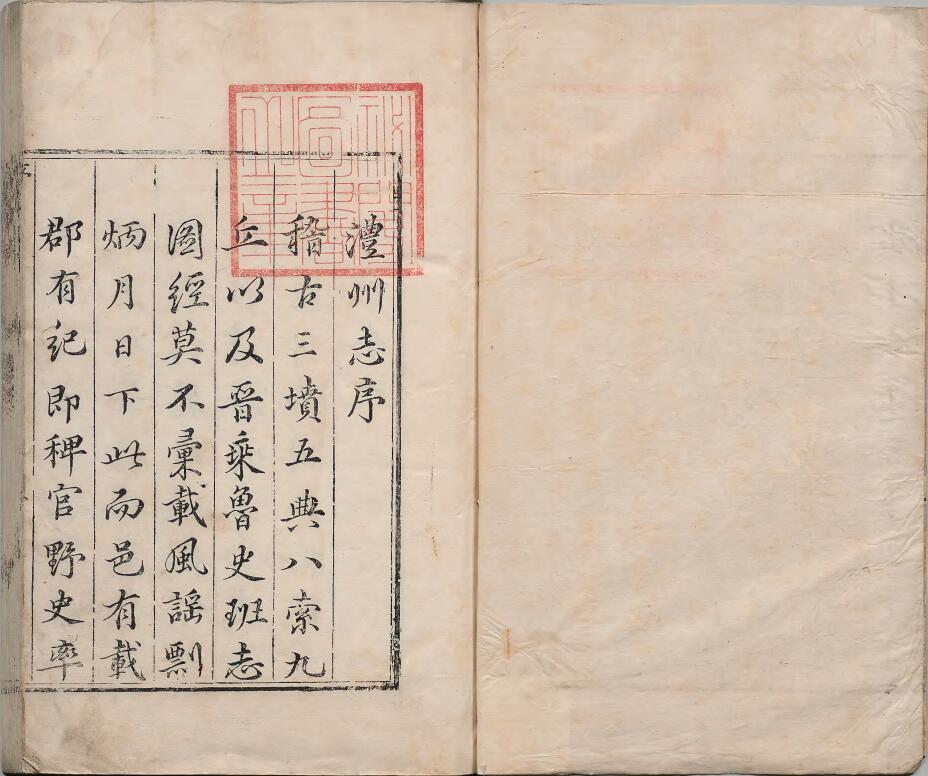 秘閣
圖書
之章
澧州志序
稽古三墳五典八索九
丘以及晉乗魯史班志
圖經莫不彙載風謡剽
炳月日下此而邑有載
郡有紀即稗官野史率